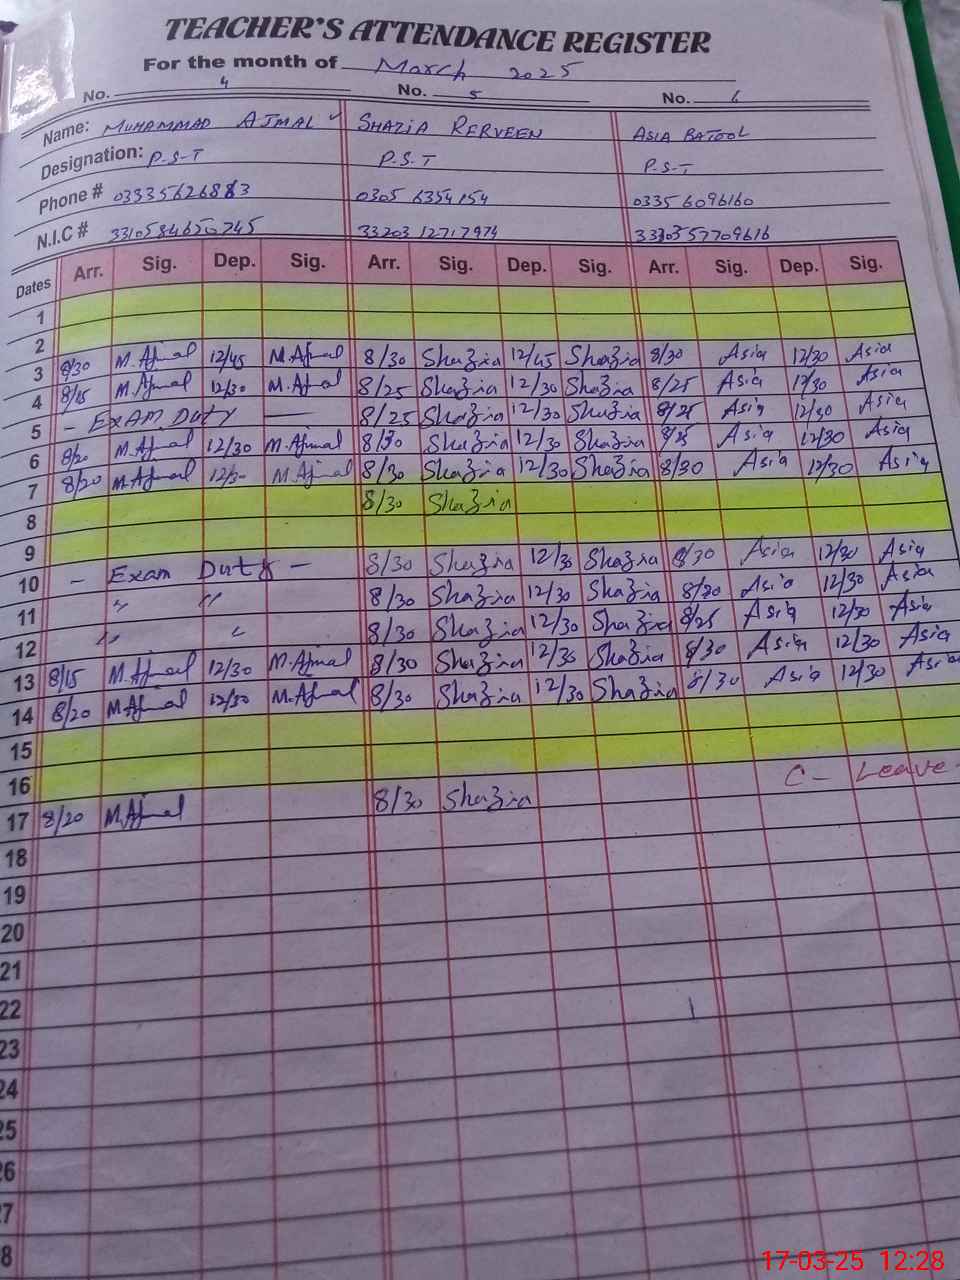 TEACHER'S ATTENDANCE REGISTER
For the month of March 2025
No. 4 No. 5 No. 6
Name: MUHAMMAD AJMAL SHAZIA PERVEEN ASIA BATOOL
Designation: P.S.T P.S.T P.S.T
Phone # 0305 6354154 03356096160
N.I.C #
Dates Arr. Sig. Dep. Sig. Arr. Sig. Dep. Sig. Arr. Sig. Dep. Sig.
1
2
3 8/30 M.Ajmal 12/45 M.Ajmal 8/30 Shazia 12/45 Shazia 8/30 Asia 12/30 Asia
4 8/15 M.Ajmal 12/30 M.Ajmal 8/25 Shazia 12/30 Shazia 8/25 Asia 12/30 Asia
5 - EXAM DUTY — 8/25 Shazia 12/30 Shazia 8/25 Asia 12/30 Asia
6 8/20 M.Ajmal 12/30 M.Ajmal 8/30 Shazia 12/30 Shazia 8/25 Asia 12/30 Asia
7 8/20 M.Ajmal 12/30 M.Ajmal 8/30 Shazia 12/30 Shazia 8/30 Asia 12/30 Asia
8 8/30 Shazia
9
10 - Exam Duty - 8/30 Shazia 12/30 Shazia 8/30 Asia 12/30 Asia
11 " " 8/30 Shazia 12/30 Shazia 8/30 Asia 12/30 Asia
12 " " 8/30 Shazia 12/30 Shazia 8/25 Asia 12/30 Asia
13 8/15 M.Ajmal 12/30 M.Ajmal 8/30 Shazia 12/30 Shazia 8/30 Asia 12/30 Asia
14 8/20 M.Ajmal 12/30 M.Ajmal 8/30 Shazia 12/30 Shazia 8/30 Asia 12/30 Asia
15
16
17 8/20 M.Ajmal 8/30 Shazia C - Leave
18
19
20
21
22
23
24
25
26
27
28
17-03-25 12:28